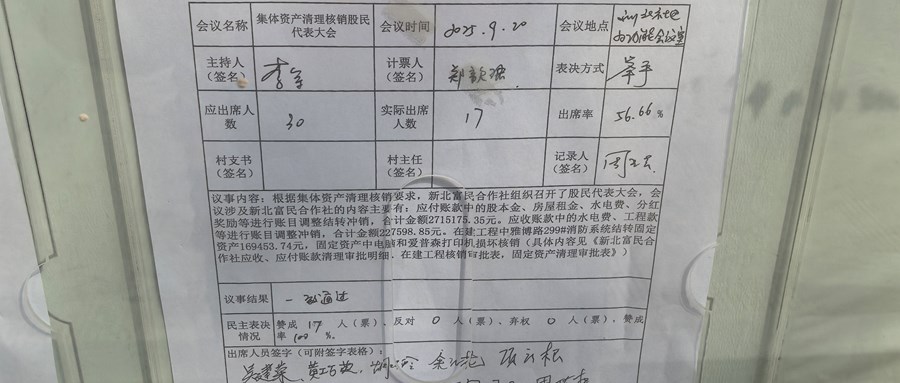 会议名称 集体资产清理核销股民代表大会 会议时间 2025.9.20 会议地点
主持人（签名） 计票人（签名） 表决方式 举手
应出席人数 30 实际出席人数 17 出席率 56.66%
村支书（签名） 村主任（签名） 记录人（签名）
议事内容：根据集体资产清理核销要求，新北富民合作社组织召开了股民代表大会，会
议涉及新北富民合作社的内容主要有：应付账款中的股本金、房屋租金、水电费、分红
奖励等进行账目调整结转冲销，合计金额2715175.35元。应收账款中的水电费、工程款
等进行账目调整冲销，合计金额227598.85元。在建工程中雅博路299#消防系统结转固定
资产169453.74元，固定资产中电脑和爱普森打印机损坏核销（具体内容见《新北富民合
作社应收、应付账款清理审批明细、在建工程核销审批表，固定资产清理审批表》）
议事结果 一致通过
民主表决情况 赞成 17 人（票），反对 0 人（票），弃权 0 人（票），赞成
率 100 %。
出席人员签字（可附签字表格）：